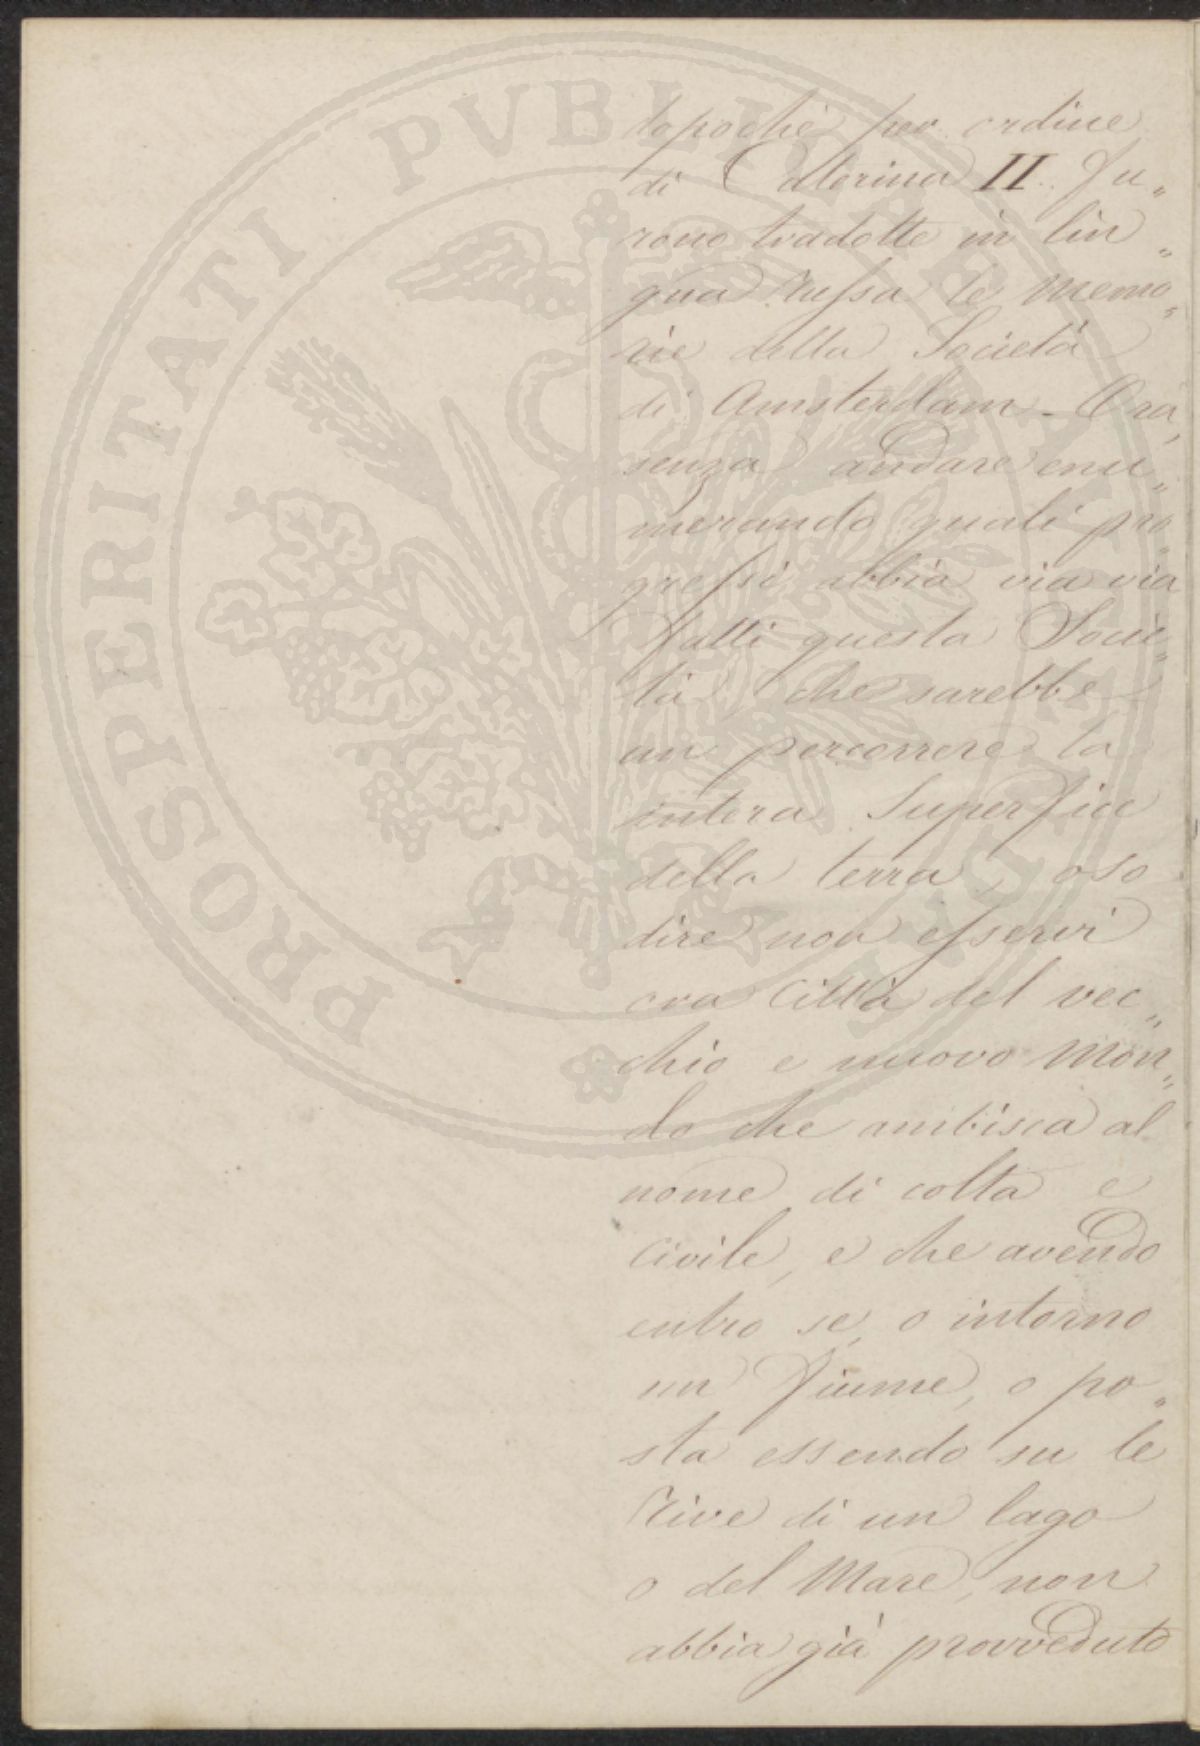 dopochè per ordine
di Caterina II. fu„
rono tradotte in lin„
gua Russa le Memo„
rie della Società
di Amsterdam - Ora,
senza andare enu„
merando quali pro„
gressi abbia via via
fatti questa Socie„
tà, che sarebbe
un percorrere la
intera Superfice
della terra, oso
dire non esservi
ora Città del vec„
chio e nuovo Mon„
do che ambisca al
nome di colta e
civile, e che avendo
entro se, o intorno
un fiume, o po„
sta essendo su le
Rive di un lago
o del Mare, non
abbia già provveduto
PROSPERITATI PVBLICAE AVGENDAE